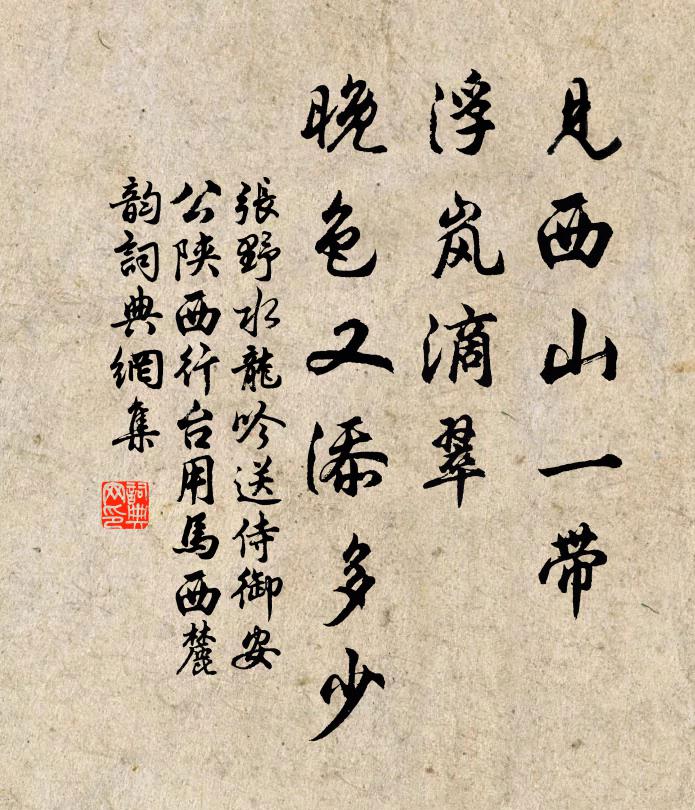 见西山一带
浮岚滴翠
晚色又添多少
張野水龍吟送侍御安
公陕西行台用馬西麓
韵詞典網集
詞典网印